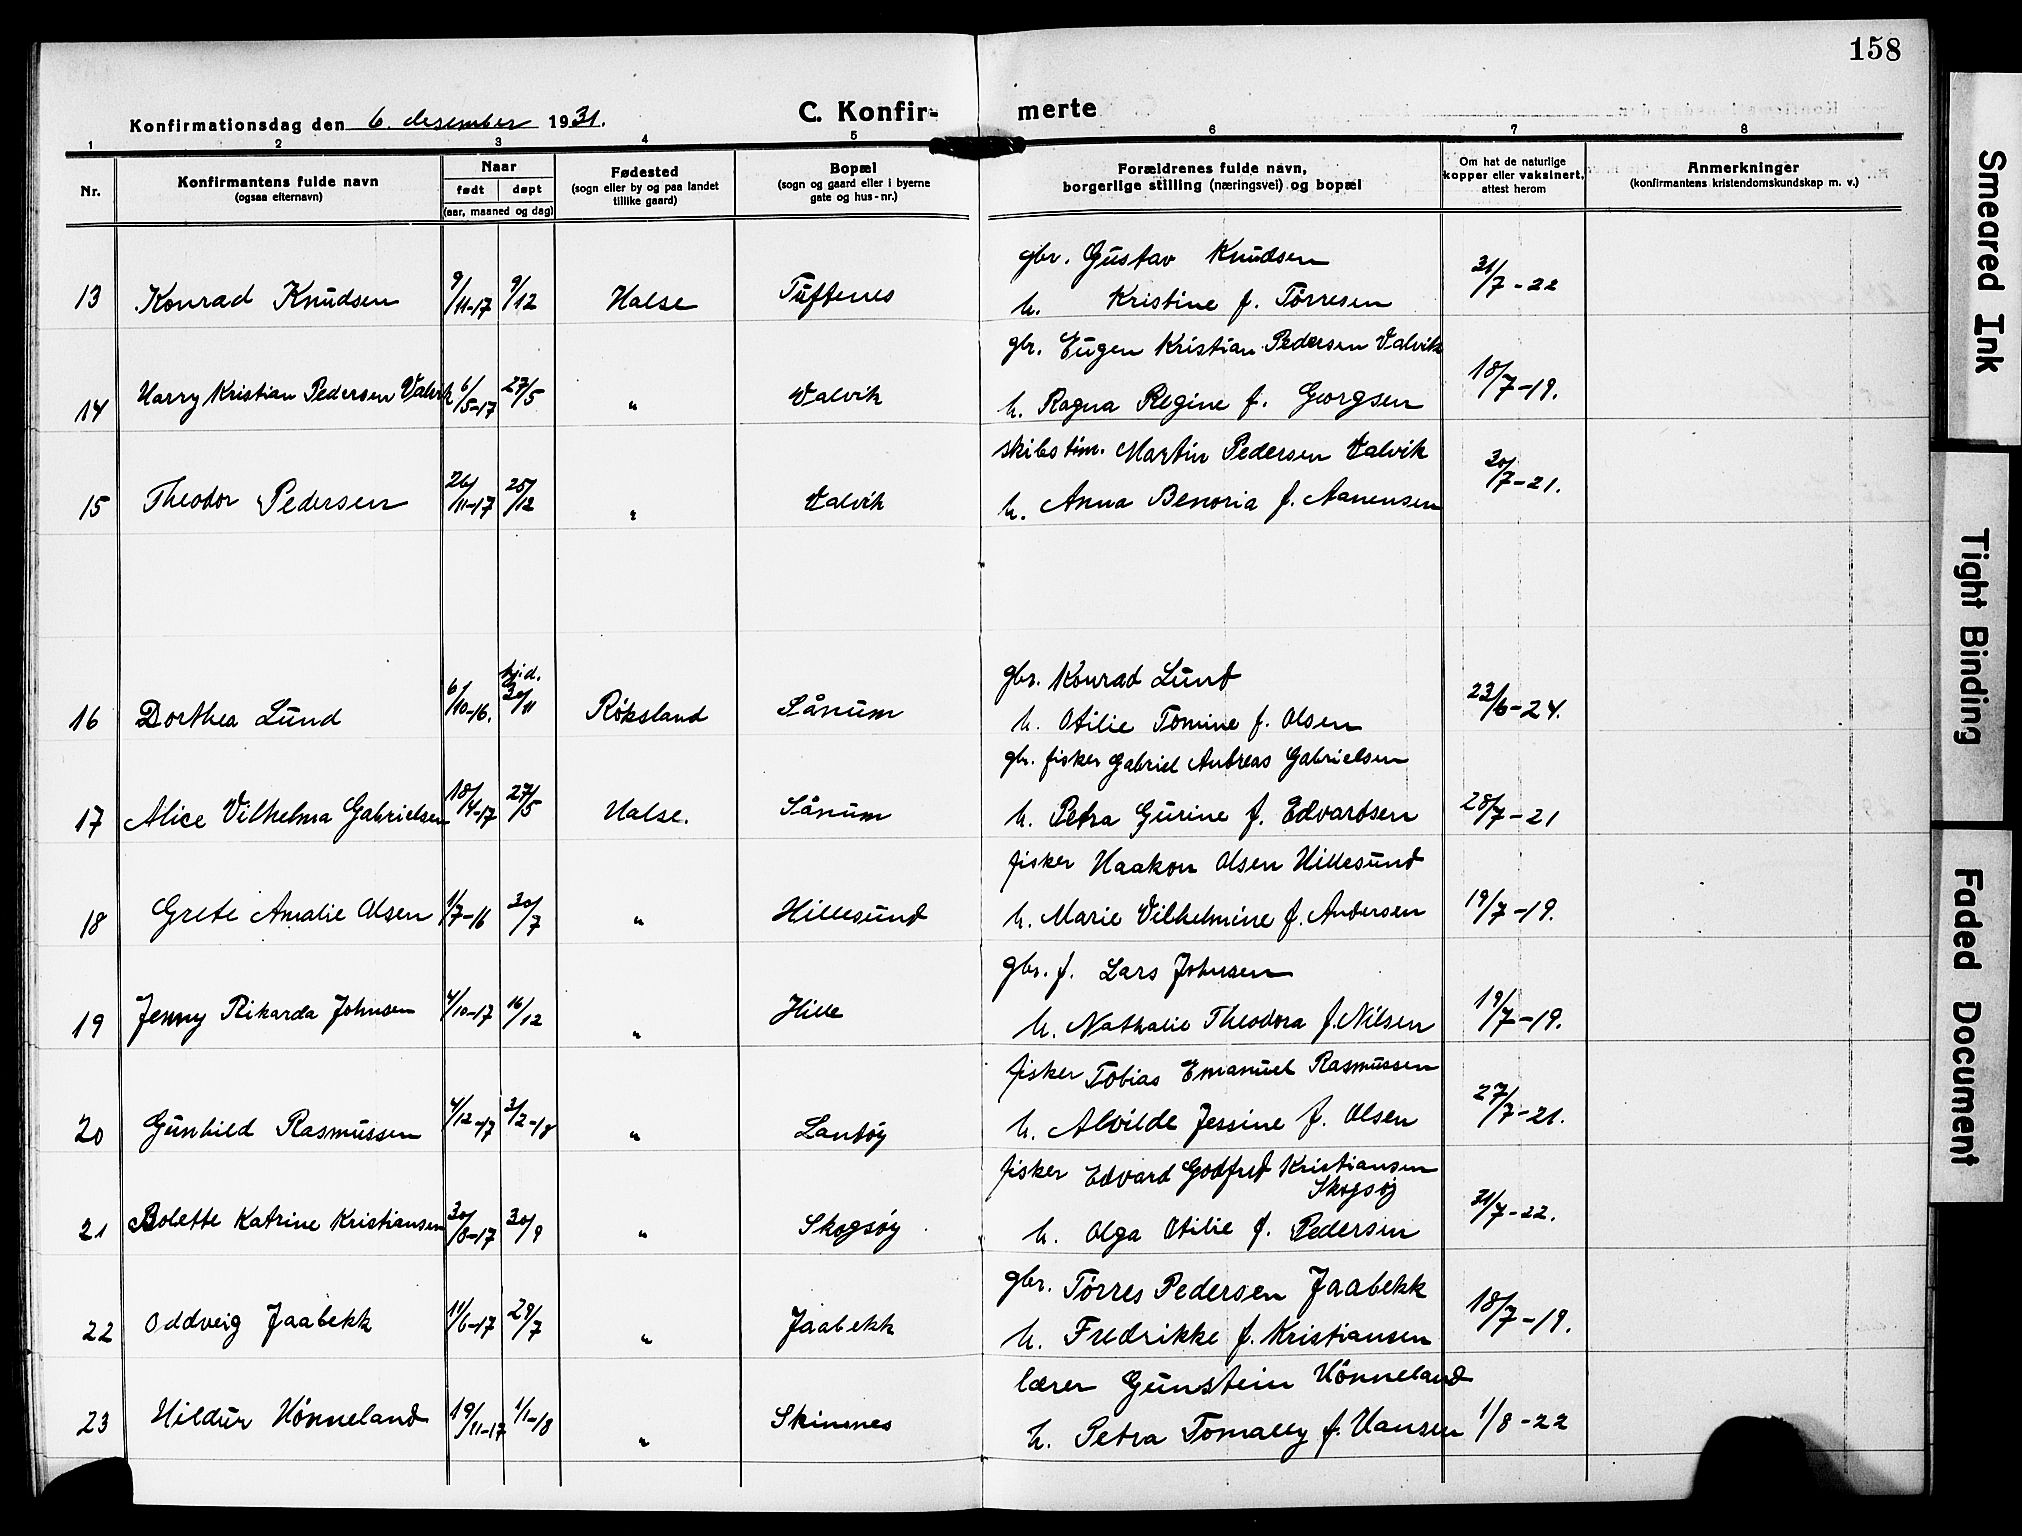 158
Konfirmationsdag den 6. desember 1931.
C. Konfir- merte
1 2 3 4 5 6 7 8
Nr.
Konfirmantens fulde navn
(ogsaa efternavn)
Naar
født døpt
(aar, maaned og dag)
Fødested
(sogn eller by og paa landet
tillike gaard)
Bopæl
(sogn og gaard eller i byerne
gate og hus-nr.)
Forældrenes fulde navn,
borgerlige stilling (næringsvei) og bopæl
Om hat de naturlige
kopper eller vaksinert,
attest herom
Anmerkninger
(konfirmantens kristendomskundskap m. v.)
gbr. Gustav Knudsen
13 Konrad Knudsen 9/11-17 9/12 Halse Tuftenes h. Kristine f. Tørresen 31/7-22
gbr. Eugen Kristian Pedersen Valvik
14 Harry Kristian Pedersen Valvik 6/5-17 27/5 " Valvik h. Ragna Regine f. Georgsen 18/7-19.
skibstim. Martin Pedersen Valvik
15 Theodor Pedersen 26/11-17 25/12 " Valvik h. Anna Benoria f. Aanensen 30/7-21.
gbr. Konrad Lund
16 Dorthea Lund 6/10-16. hjd. 30/11 Røksland Sånum h. Otilie Tomine f. Olsen 23/6-24.
gbr. fisker Gabriel Andreas Gabrielsen
17 Alice Vilhelma Gabrielsen 18/4-17 27/5 Halse. Sånum h. Petra Gurine f. Edvardsen 28/7-21
fisker Haakon Olsen Hillesund
18 Grete Amalie Olsen 1/7-16 30/7 " Hillesund h. Marie Vilhelmine f. Andersen 19/7-19.
gbr. f. Lars Johnsen
19 Jenny Rikarda Johnsen 4/10-17 16/12 " Hille h. Nathalie Theodora f. Nilsen 19/7-19.
fisker Tobias Emanuel Rasmussen
20 Gunhild Rasmussen 4/12-17 3/2-18 " Landøy h. Alvilde Jessine f. Olsen 27/7-21.
fisker Edvard Godfred Kristiansen
Skogsøy
21 Bolette Katrine Kristiansen 30/8-17 30/9 " Skogsøy h. Olga Otilie f. Pedersen 31/7-22.
gbr. Tørres Pedersen Jaabekk
22 Oddveig Jaabekk 11/6-17 29/7 " Jaabekk h. Fredrikke f. Kristiansen 18/7-19.
lærer Gunstein Hønneland
23 Hildur Hønneland 19/11-17 1/1-18 " Skinsnes h. Petra Tomally f. Hansen 1/8-22
Smeared Ink
Tight Binding
Faded Document